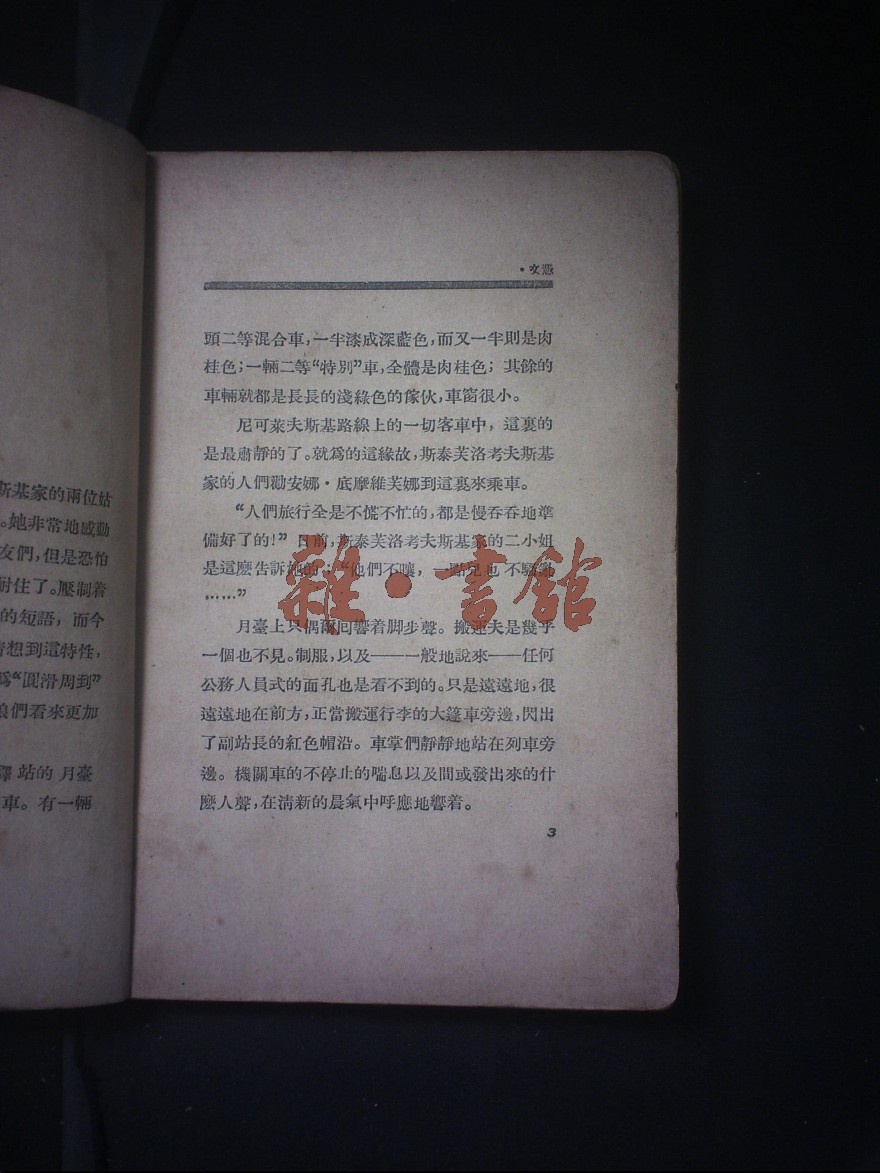 斯基家的兩位姑
。她非常地感動
友們，但是恐怕
耐住了。壓制着
的短語，而今
想到這特性，
爲“圓滑周到”
娘們看來更加
站的月臺
車。有一輛
頭二等混合車，一半漆成深藍色，而又一半則是肉
桂色；一輛二等“特別”車，全體是肉桂色；其餘的
車輛就都是長長的淺綠色的傢伙，車窗很小。
尼可萊夫斯基路線上的一切客車中，這裏的
是最肅靜的了。就爲的這緣故，斯泰芙洛考夫斯基
家的人們勸安娜·底摩維芙娜到這裏來乘車。
“人們旅行全是不慌不忙的，都是慢吞吞地準
備好了的！”日前，斯泰芙洛考夫斯基家的二小姐
是這麽告訴她的；“他們不嚷，一點兒也不騷亂
……”
月臺上只偶爾回響着脚步聲。搬運夫是幾乎
一個也不見。制服，以及——一般地說來——任何
公務人員式的面孔也是看不到的。只是遠遠地，很
遠遠地在前方，正當搬運行李的大篷車旁邊，閃出
了副站長的紅色帽沿。車掌們靜靜地站在列車旁
邊。機關車的不停止的喘息以及間或發出來的什
麽人聲，在清新的晨氣中呼應地響着。
3
雜·書館